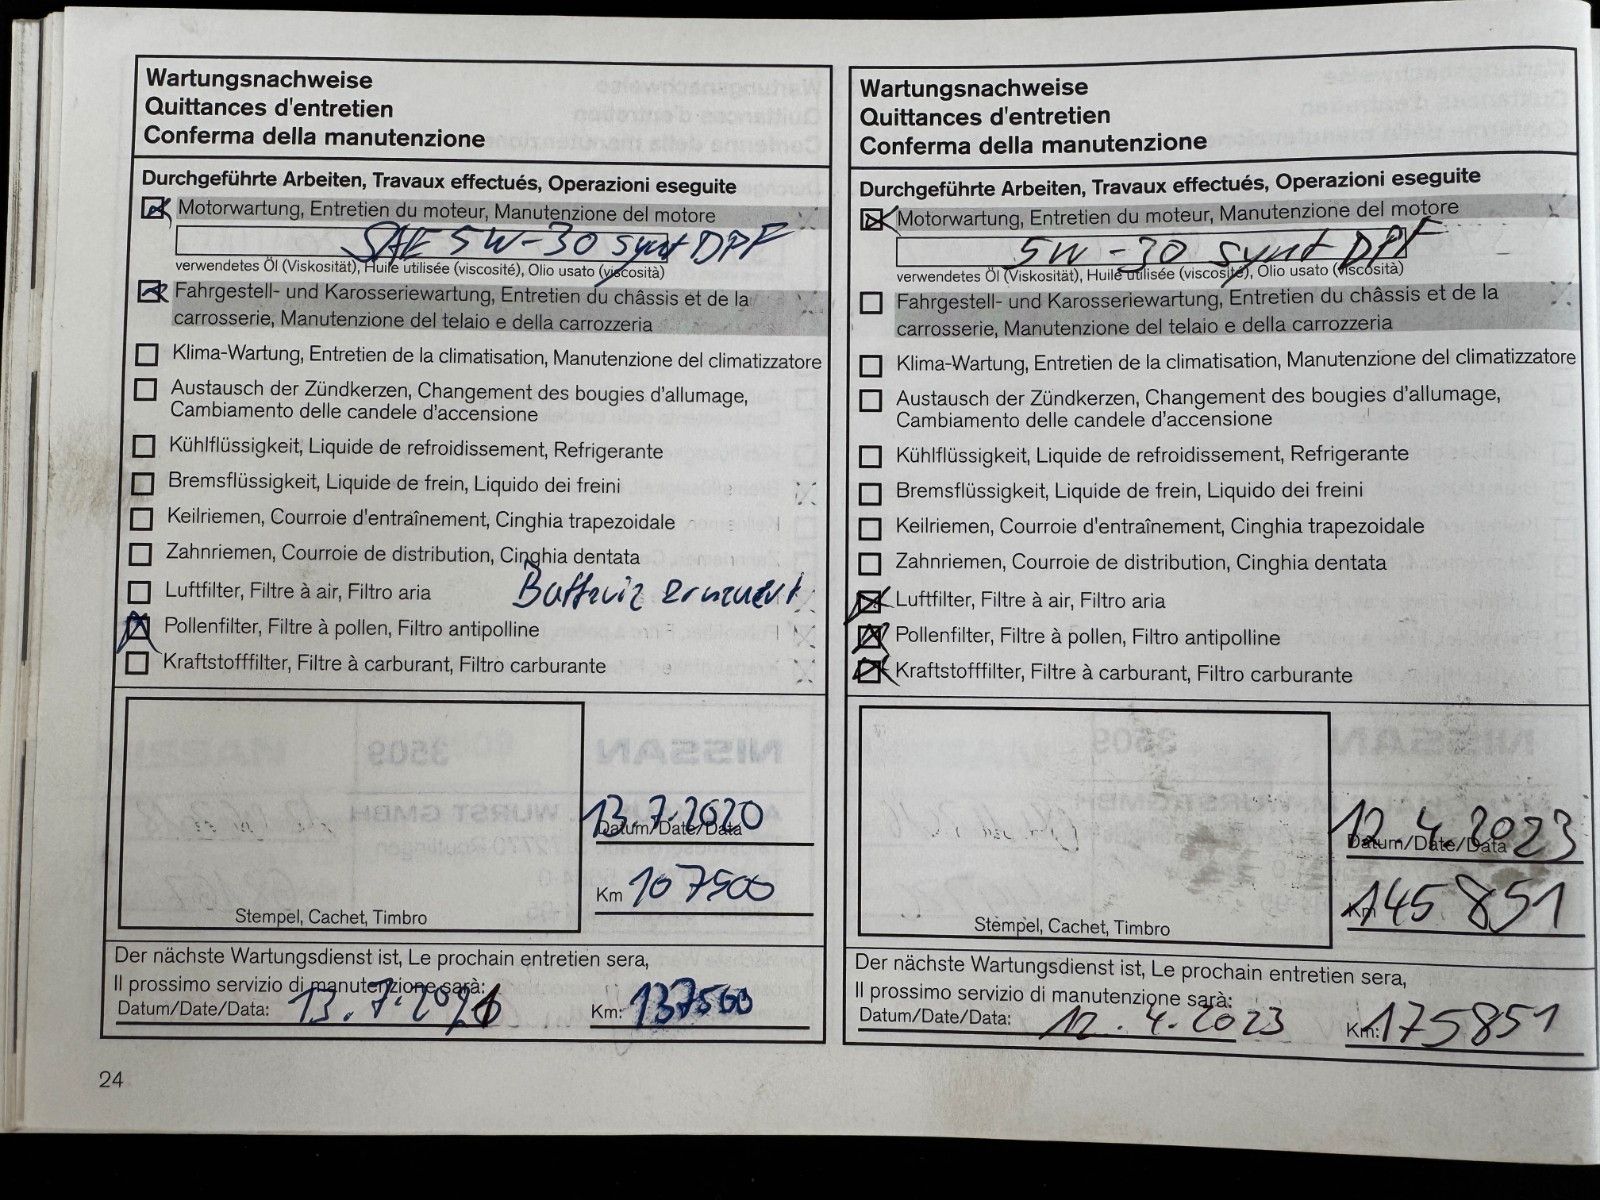 Wartungsnachweise
Quittances d'entretien
Conferma della manutenzione
Durchgeführte Arbeiten, Travaux effectués, Operazioni eseguite
Motorwartung, Entretien du moteur, Manutenzione del motore
SAE 5W-30 synt DPF
verwendetes Öl (Viskosität), Huile utilisée (viscosité), Olio usato (viscosità)
Fahrgestell- und Karosseriewartung, Entretien du châssis et de la
carrosserie, Manutenzione del telaio e della carrozzeria
Klima-Wartung, Entretien de la climatisation, Manutenzione del climatizzatore
Austausch der Zündkerzen, Changement des bougies d'allumage,
Cambiamento delle candele d'accensione
Kühlflüssigkeit, Liquide de refroidissement, Refrigerante
Bremsflüssigkeit, Liquide de frein, Liquido dei freini
Keilriemen, Courroie d'entraînement, Cinghia trapezoidale
Zahnriemen, Courroie de distribution, Cinghia dentata
Luftfilter, Filtre à air, Filtro aria
erneuert
Pollenfilter, Filtre à pollen, Filtro antipolline
Kraftstofffilter, Filtre à carburant, Filtro carburante
13.7.2020
Datum/Date/Data
Km 107500
Stempel, Cachet, Timbro
Der nächste Wartungsdienst ist, Le prochain entretien sera,
Il prossimo servizio di manutenzione sarà:
Datum/Date/Data: 13.7.2021
Km: 137500
24
Wartungsnachweise
Quittances d'entretien
Conferma della manutenzione
Durchgeführte Arbeiten, Travaux effectués, Operazioni eseguite
Motorwartung, Entretien du moteur, Manutenzione del motore
5W-30 synt DPF
verwendetes Öl (Viskosität), Huile utilisée (viscosité), Olio usato (viscosità)
Fahrgestell- und Karosseriewartung, Entretien du châssis et de la
carrosserie, Manutenzione del telaio e della carrozzeria
Klima-Wartung, Entretien de la climatisation, Manutenzione del climatizzatore
Austausch der Zündkerzen, Changement des bougies d'allumage,
Cambiamento delle candele d'accensione
Kühlflüssigkeit, Liquide de refroidissement, Refrigerante
Bremsflüssigkeit, Liquide de frein, Liquido dei freini
Keilriemen, Courroie d'entraînement, Cinghia trapezoidale
Zahnriemen, Courroie de distribution, Cinghia dentata
Luftfilter, Filtre à air, Filtro aria
Pollenfilter, Filtre à pollen, Filtro antipolline
Kraftstofffilter, Filtre à carburant, Filtro carburante
12.4.2023
Datum/Date/Data
Km 145851
Stempel, Cachet, Timbro
Der nächste Wartungsdienst ist, Le prochain entretien sera,
Il prossimo servizio di manutenzione sarà:
Datum/Date/Data: 12.4.2023
Km: 175851